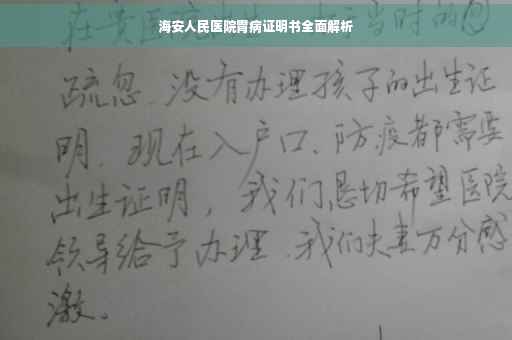 海安人民医院胃病证明书全面解析
当时的
疏忽、没有办理孩子的出生证
明。现在入户口、防疫都需要
出生证明，我们恳切希望医院
领导给予办理，我们夫妻万分感
激。